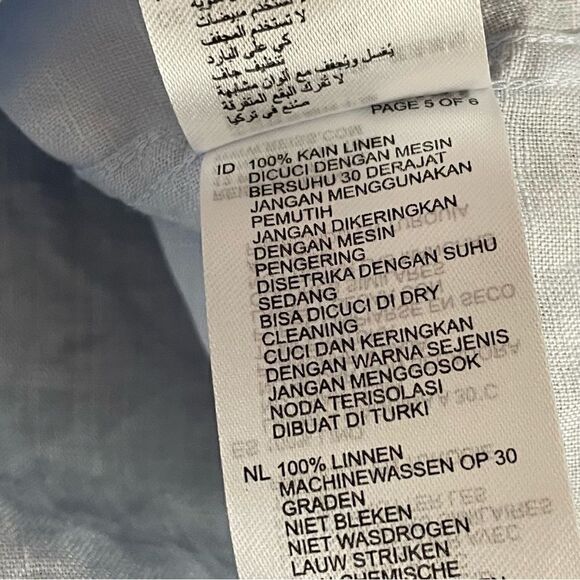 لا تستخدم المجفف
كي على البارد
تنظيف جاف
يُغسل ويُجفف مع ألوان مشابهة
لا تفرك البقع المتفرقة
صنع في تركيا
PAGE 5 OF 6
ID 100% KAIN LINEN
DICUCI DENGAN MESIN
BERSUHU 30 DERAJAT
JANGAN MENGGUNAKAN
PEMUTIH
JANGAN DIKERINGKAN
DENGAN MESIN
PENGERING
DISETRIKA DENGAN SUHU
SEDANG
BISA DICUCI DI DRY
CLEANING
CUCI DAN KERINGKAN
DENGAN WARNA SEJENIS
JANGAN MENGGOSOK
NODA TERISOLASI
DIBUAT DI TURKI
NL 100% LINNEN
MACHINEWASSEN OP 30
GRADEN
NIET BLEKEN
NIET WASDROGEN
LAUW STRIJKEN